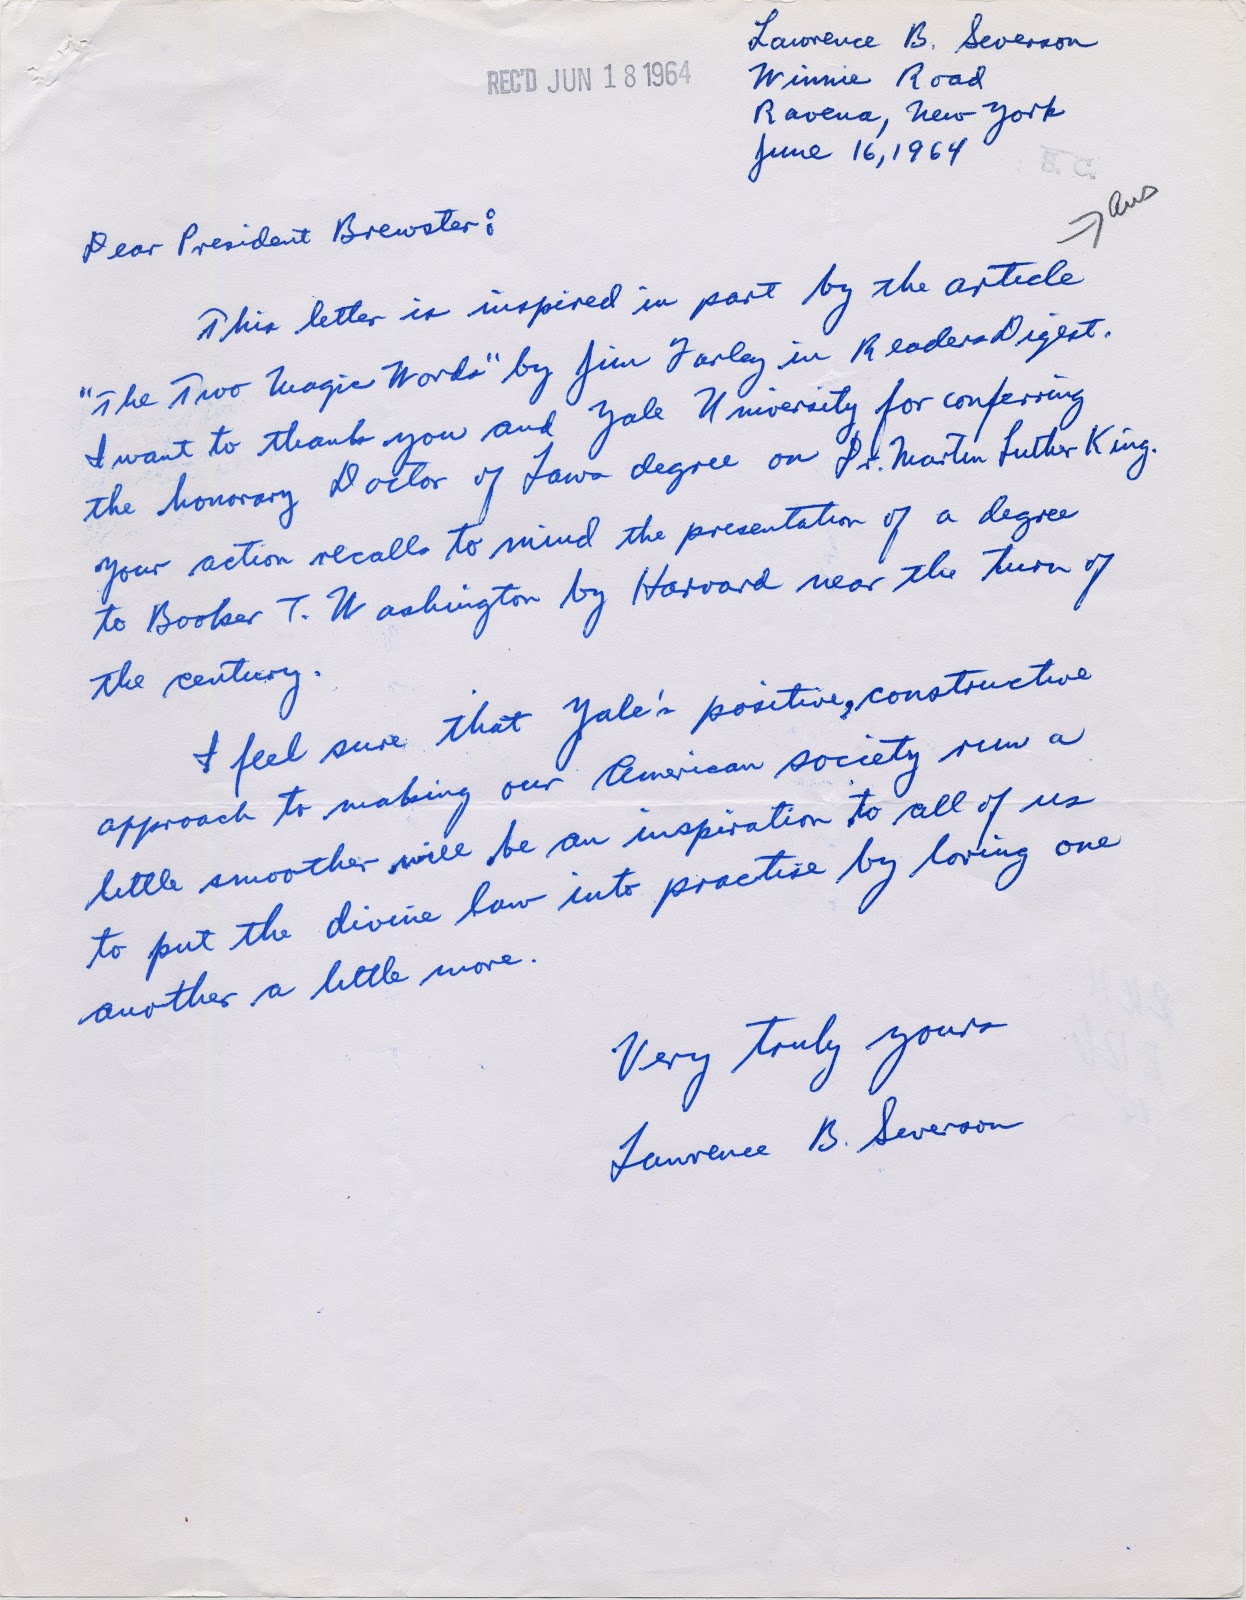 Lawrence B. Severson
REC'D JUN 18 1964
Winnie Road
Ravena, New York
June 16, 1964
B. C.
ans
Dear President Brewster:
This letter is inspired in part by the article
"The Two Magic Words" by Jim Farley in Readers Digest.
I want to thank you and Yale University for conferring
the honorary Doctor of Laws degree on Dr. Martin Luther King.
Your action recalls to mind the presentation of a degree
to Booker T. Washington by Harvard near the turn of
the century.
I feel sure that Yale's positive, constructive
approach to making our American society run a
little smoother will be an inspiration to all of us
to put the divine law into practise by loving one
another a little more.
Very truly yours
Lawrence B. Severson